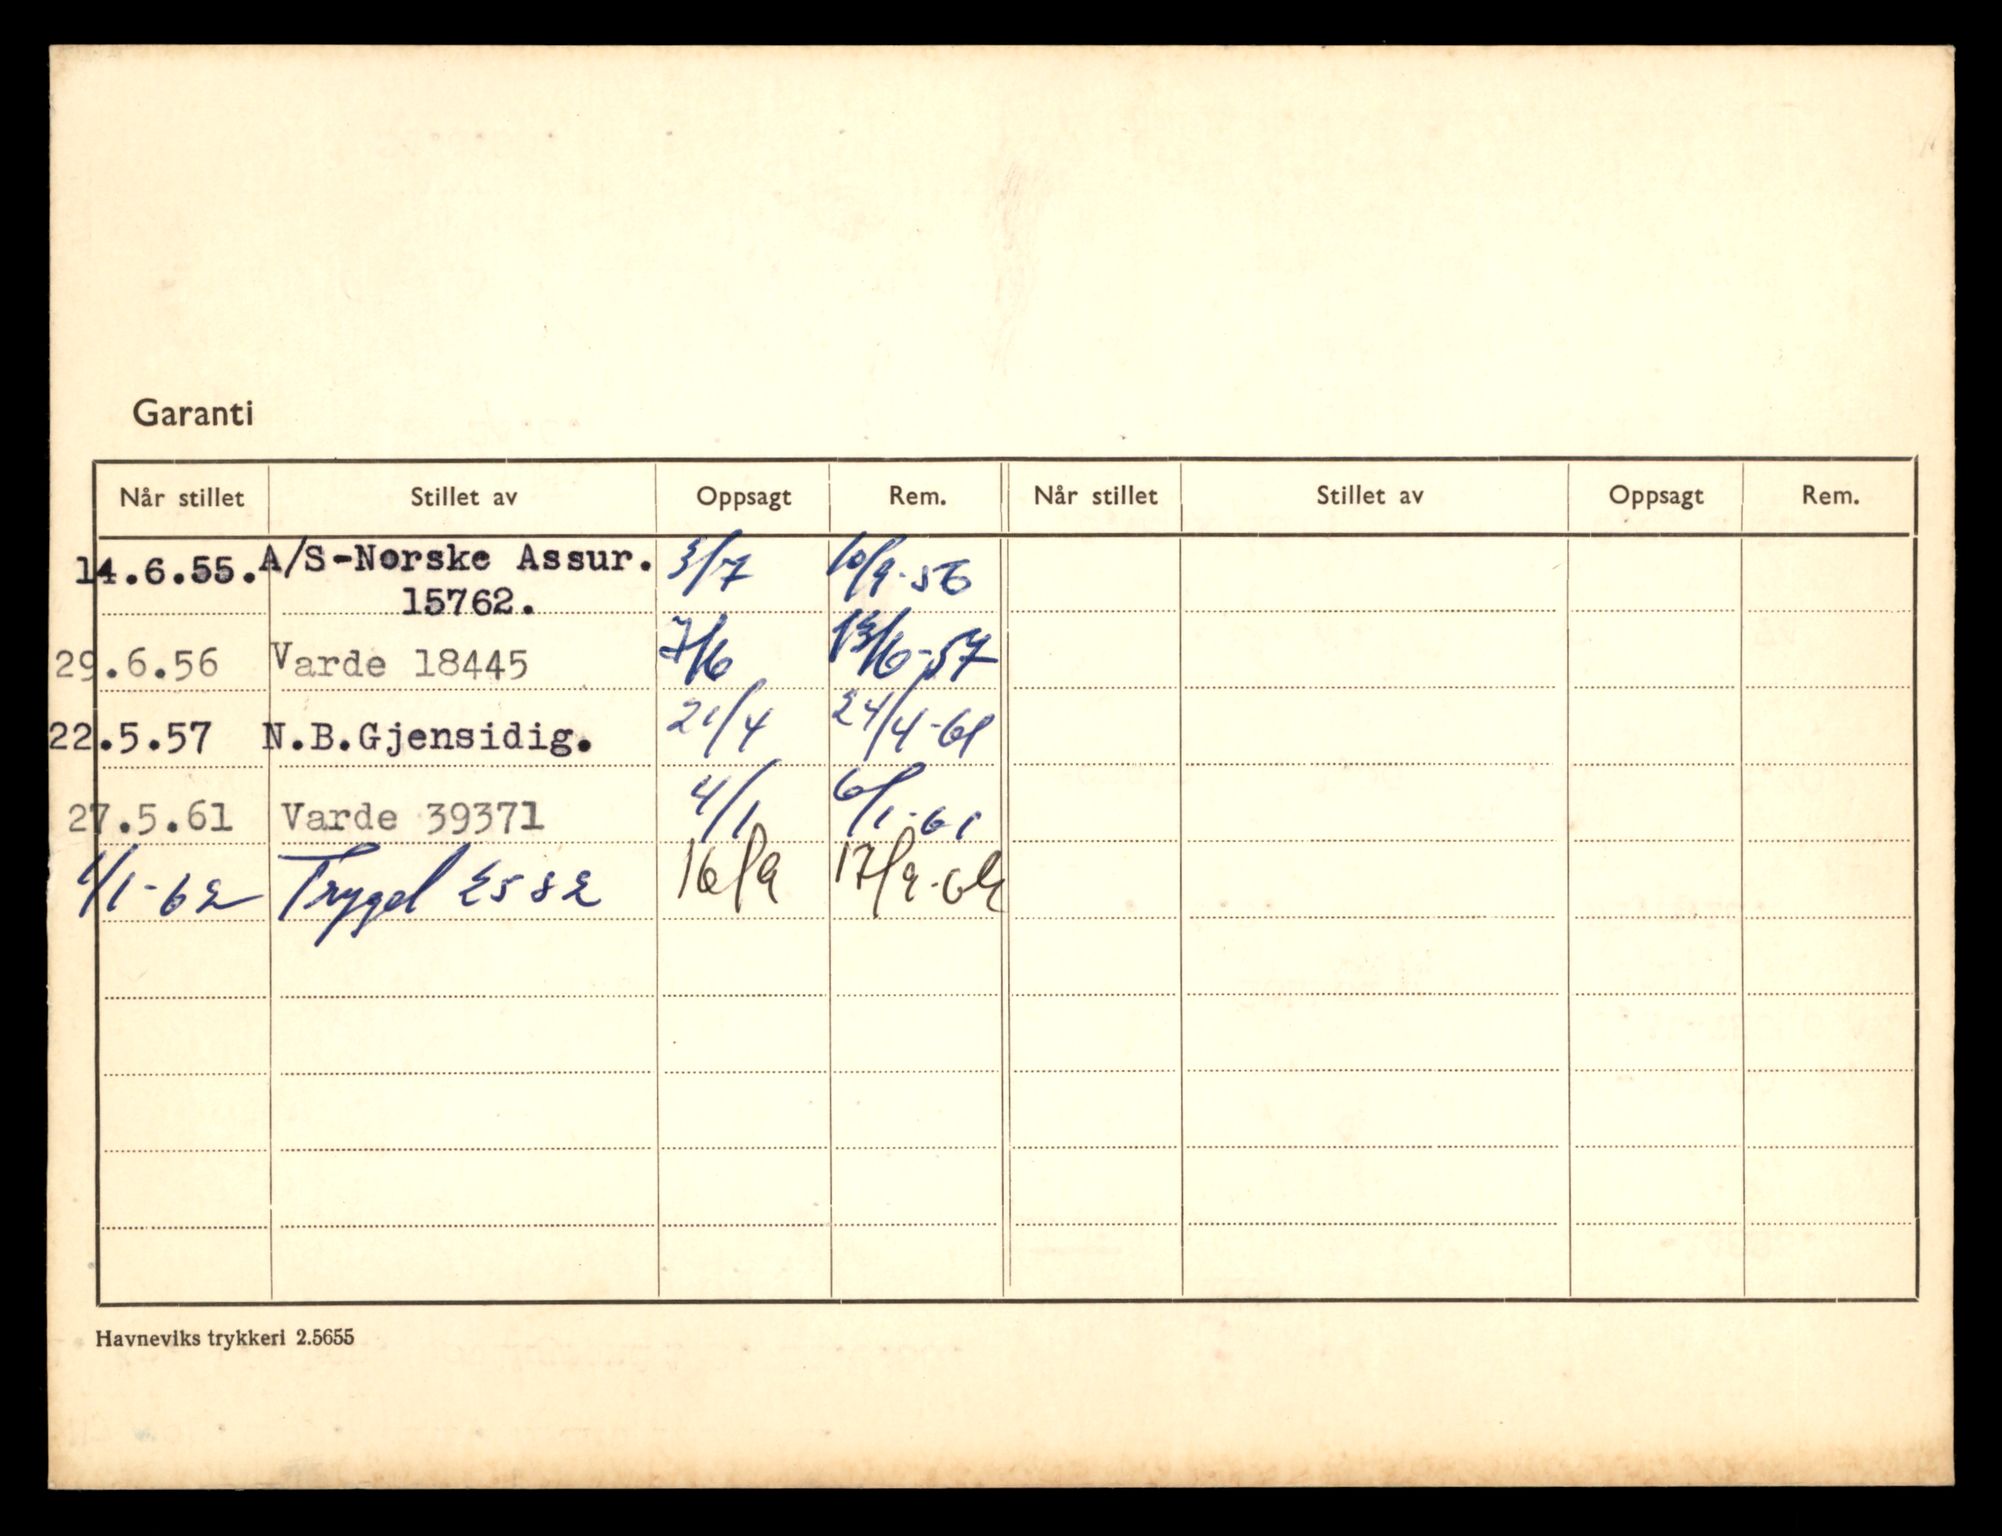 Garanti
Når stillet Stillet av Oppsagt Rem. Når stillet Stillet av Oppsagt Rem.
14.6.55. A/S-Norske Assur. 3/7 10/9-56
15762.
29.6.56 Varde 18445 7/6 13/6-57
22.5.57 N.B.Gjensidig. 21/4 24/4-61
27.5.61 Varde 39371 4/1 6/1-61
1/1-62 Trygd 2582 16/9 17/9-64
Havneviks trykkeri 2.5655